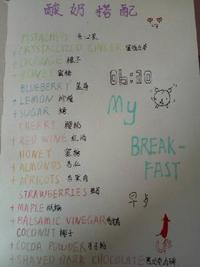 酸奶搭配
PISTACHIOS 开心果
+ CRYSTALLIZED GINGER
+ ORANGE 橙子
+ HONEY 蜂蜜
BLUEBERRY 蓝莓
+ LEMON 柠檬
+ SUGAR 糖
CHERRY 樱桃
+ RED WINE 红酒
HONEY 蜂蜜
+ ALMONDS 杏仁
+ APRICOTS
STRAWBERRIES 草莓
+ MAPLE 枫糖
+ BALSAMIC VINEGAR
COCONUT 椰子
+ COCOA POWDER 可可粉
+ SHAVED DARK CHOCOLATE
My
BREAK-
FAST